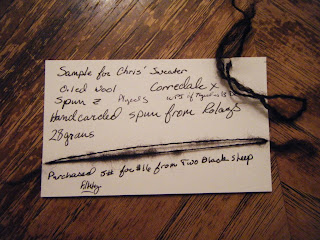 Sample for Chris' Sweater
Oiled Wool Corredale X
Spun Z Plyed S WPS if
Handcarded spun from Rolags
28 grams
Purchased for $16 from Two Black Sheep